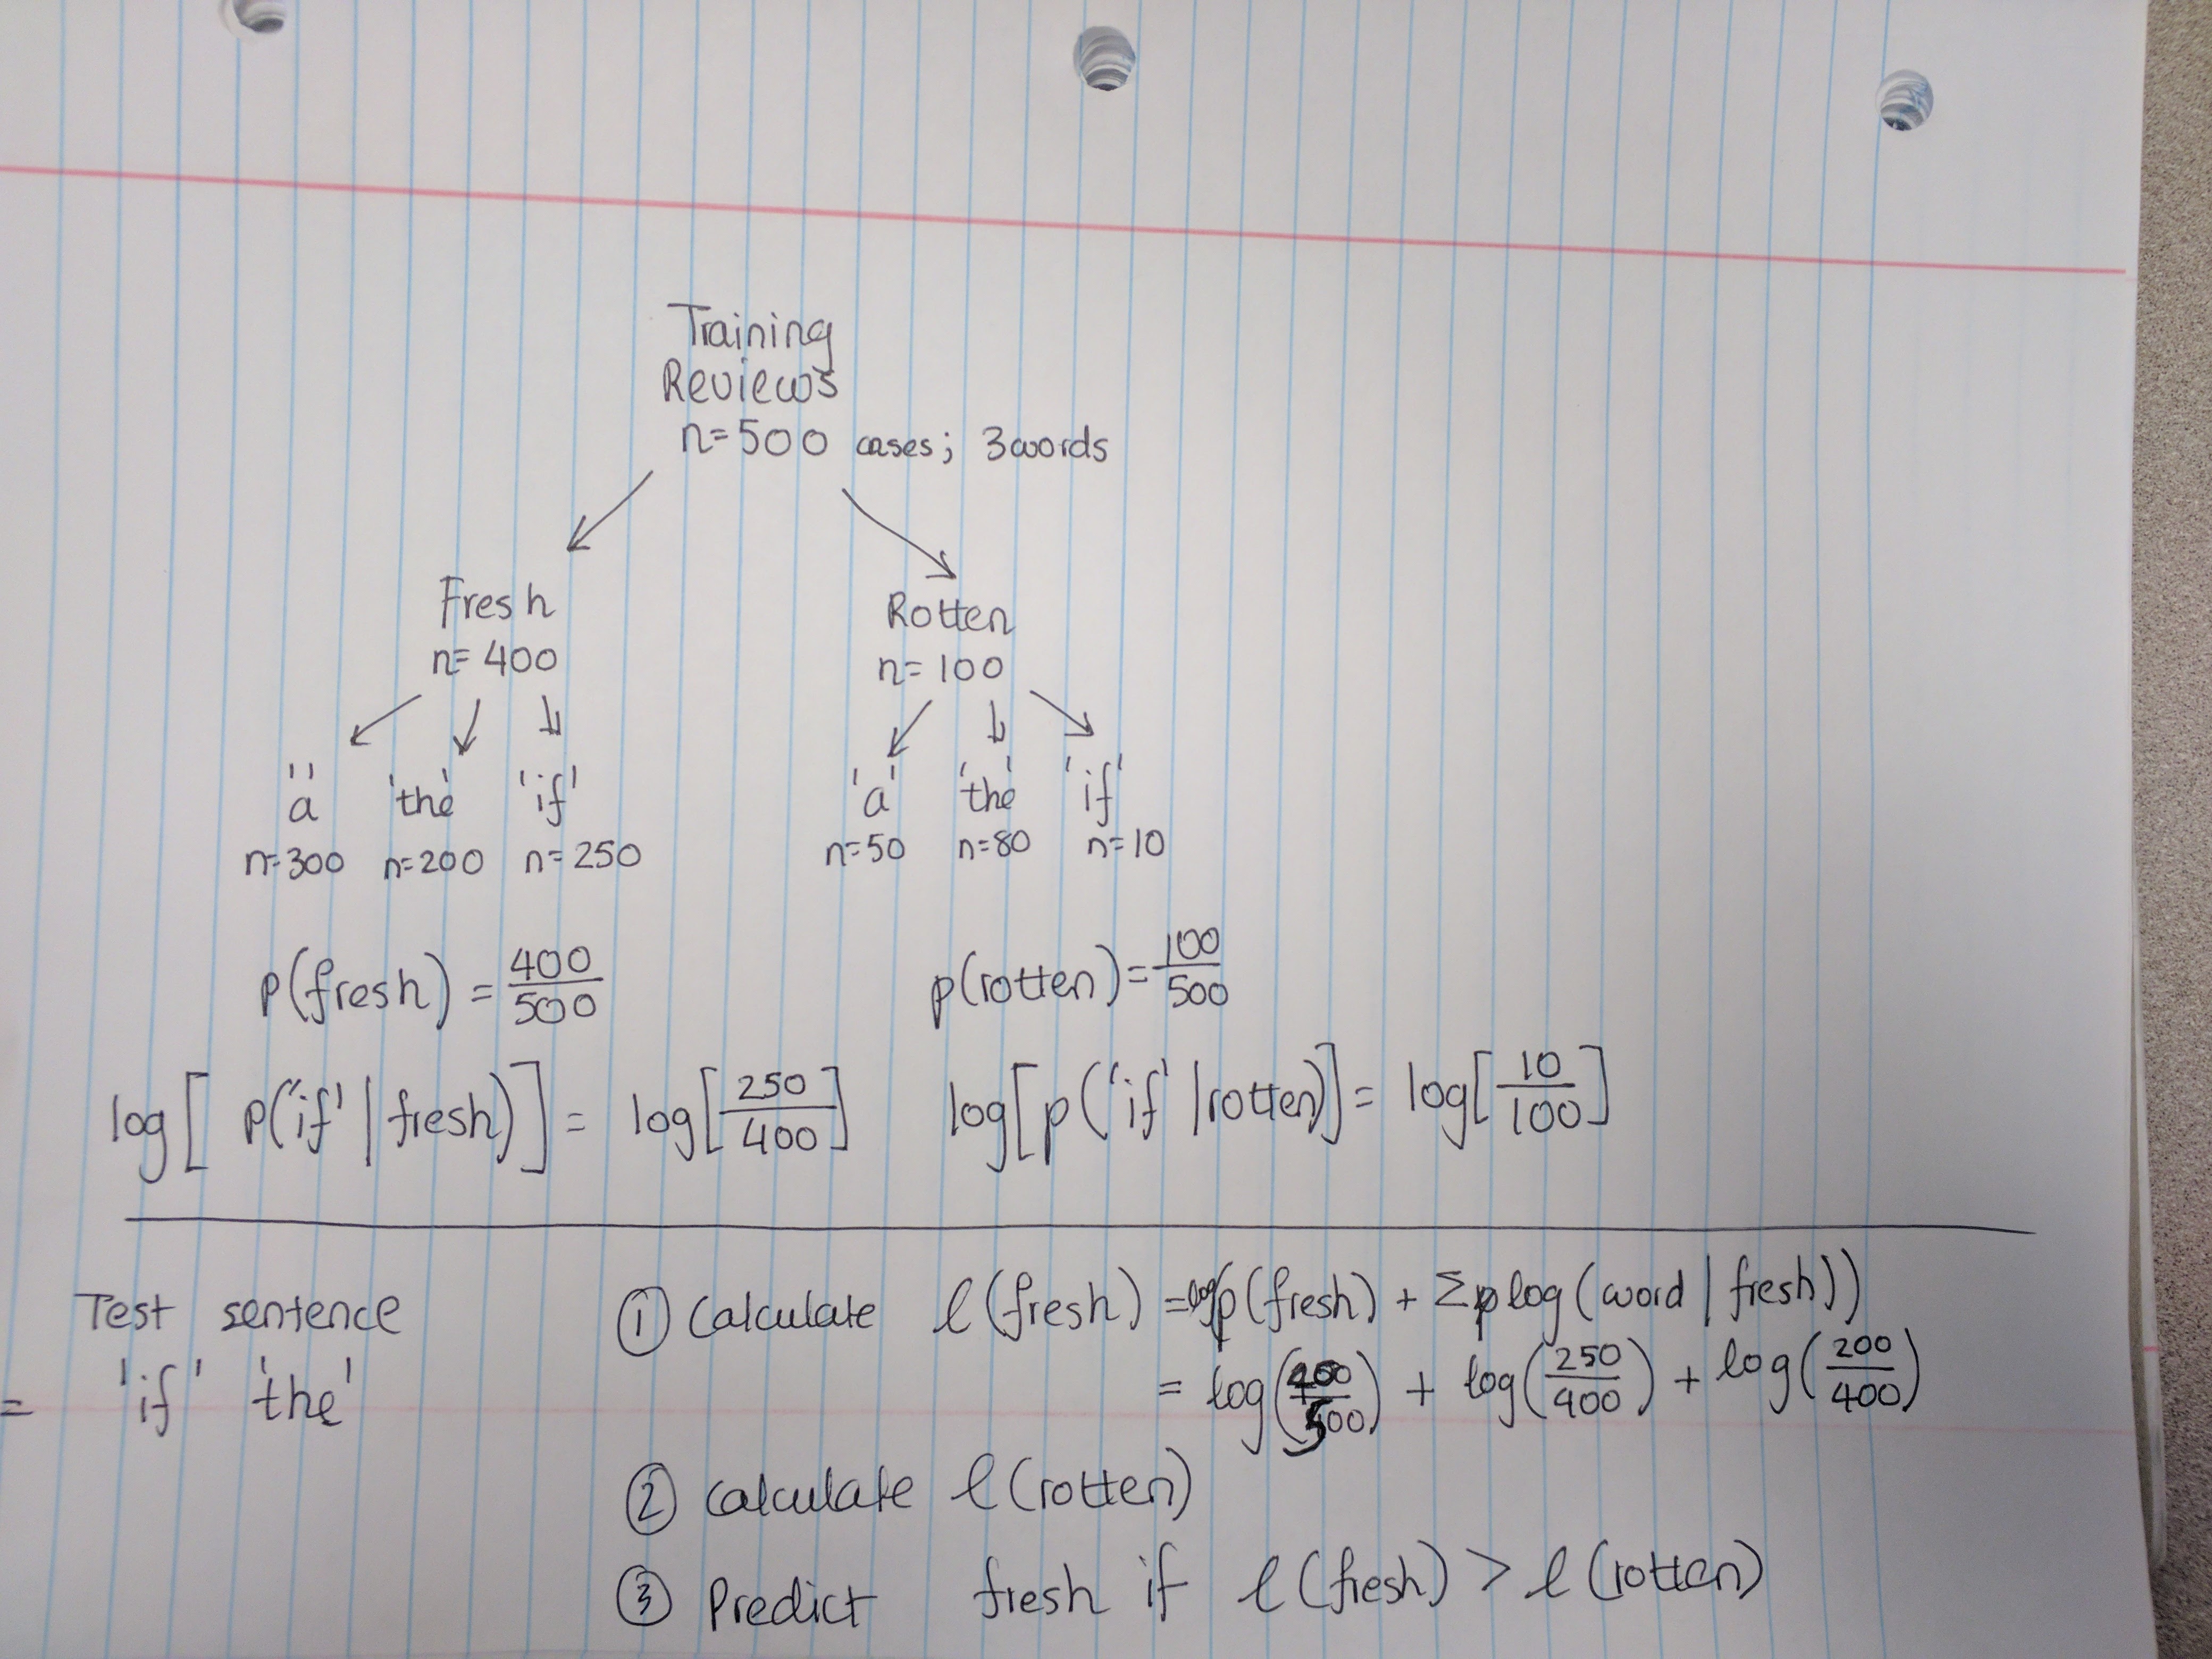 Training
Reviews
n=500 cases; 3 words
Fresh
n=400
Rotten
n=100
'a' 'the' 'if'
n=300 n=200 n=250
'a' 'the' 'if'
n=50 n=80 n=10
p(fresh) = 400/500
p(rotten) = 100/500
log[ p('if' | fresh)] = log[250/400]
log[p('if' | rotten)] = log[10/100]
Test sentence
= 'if' 'the'
① Calculate ℓ(fresh) = log p(fresh) + Σ log(word | fresh))
= log(400/500) + log(250/400) + log(200/400)
② Calculate ℓ(rotten)
③ Predict fresh if ℓ(fresh) > ℓ(rotten)